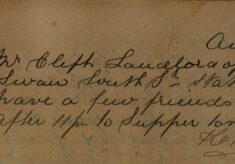 Au
Mr Clifft Landford of
Swan South St- stat
have a few friends
after 11pm to Supper to